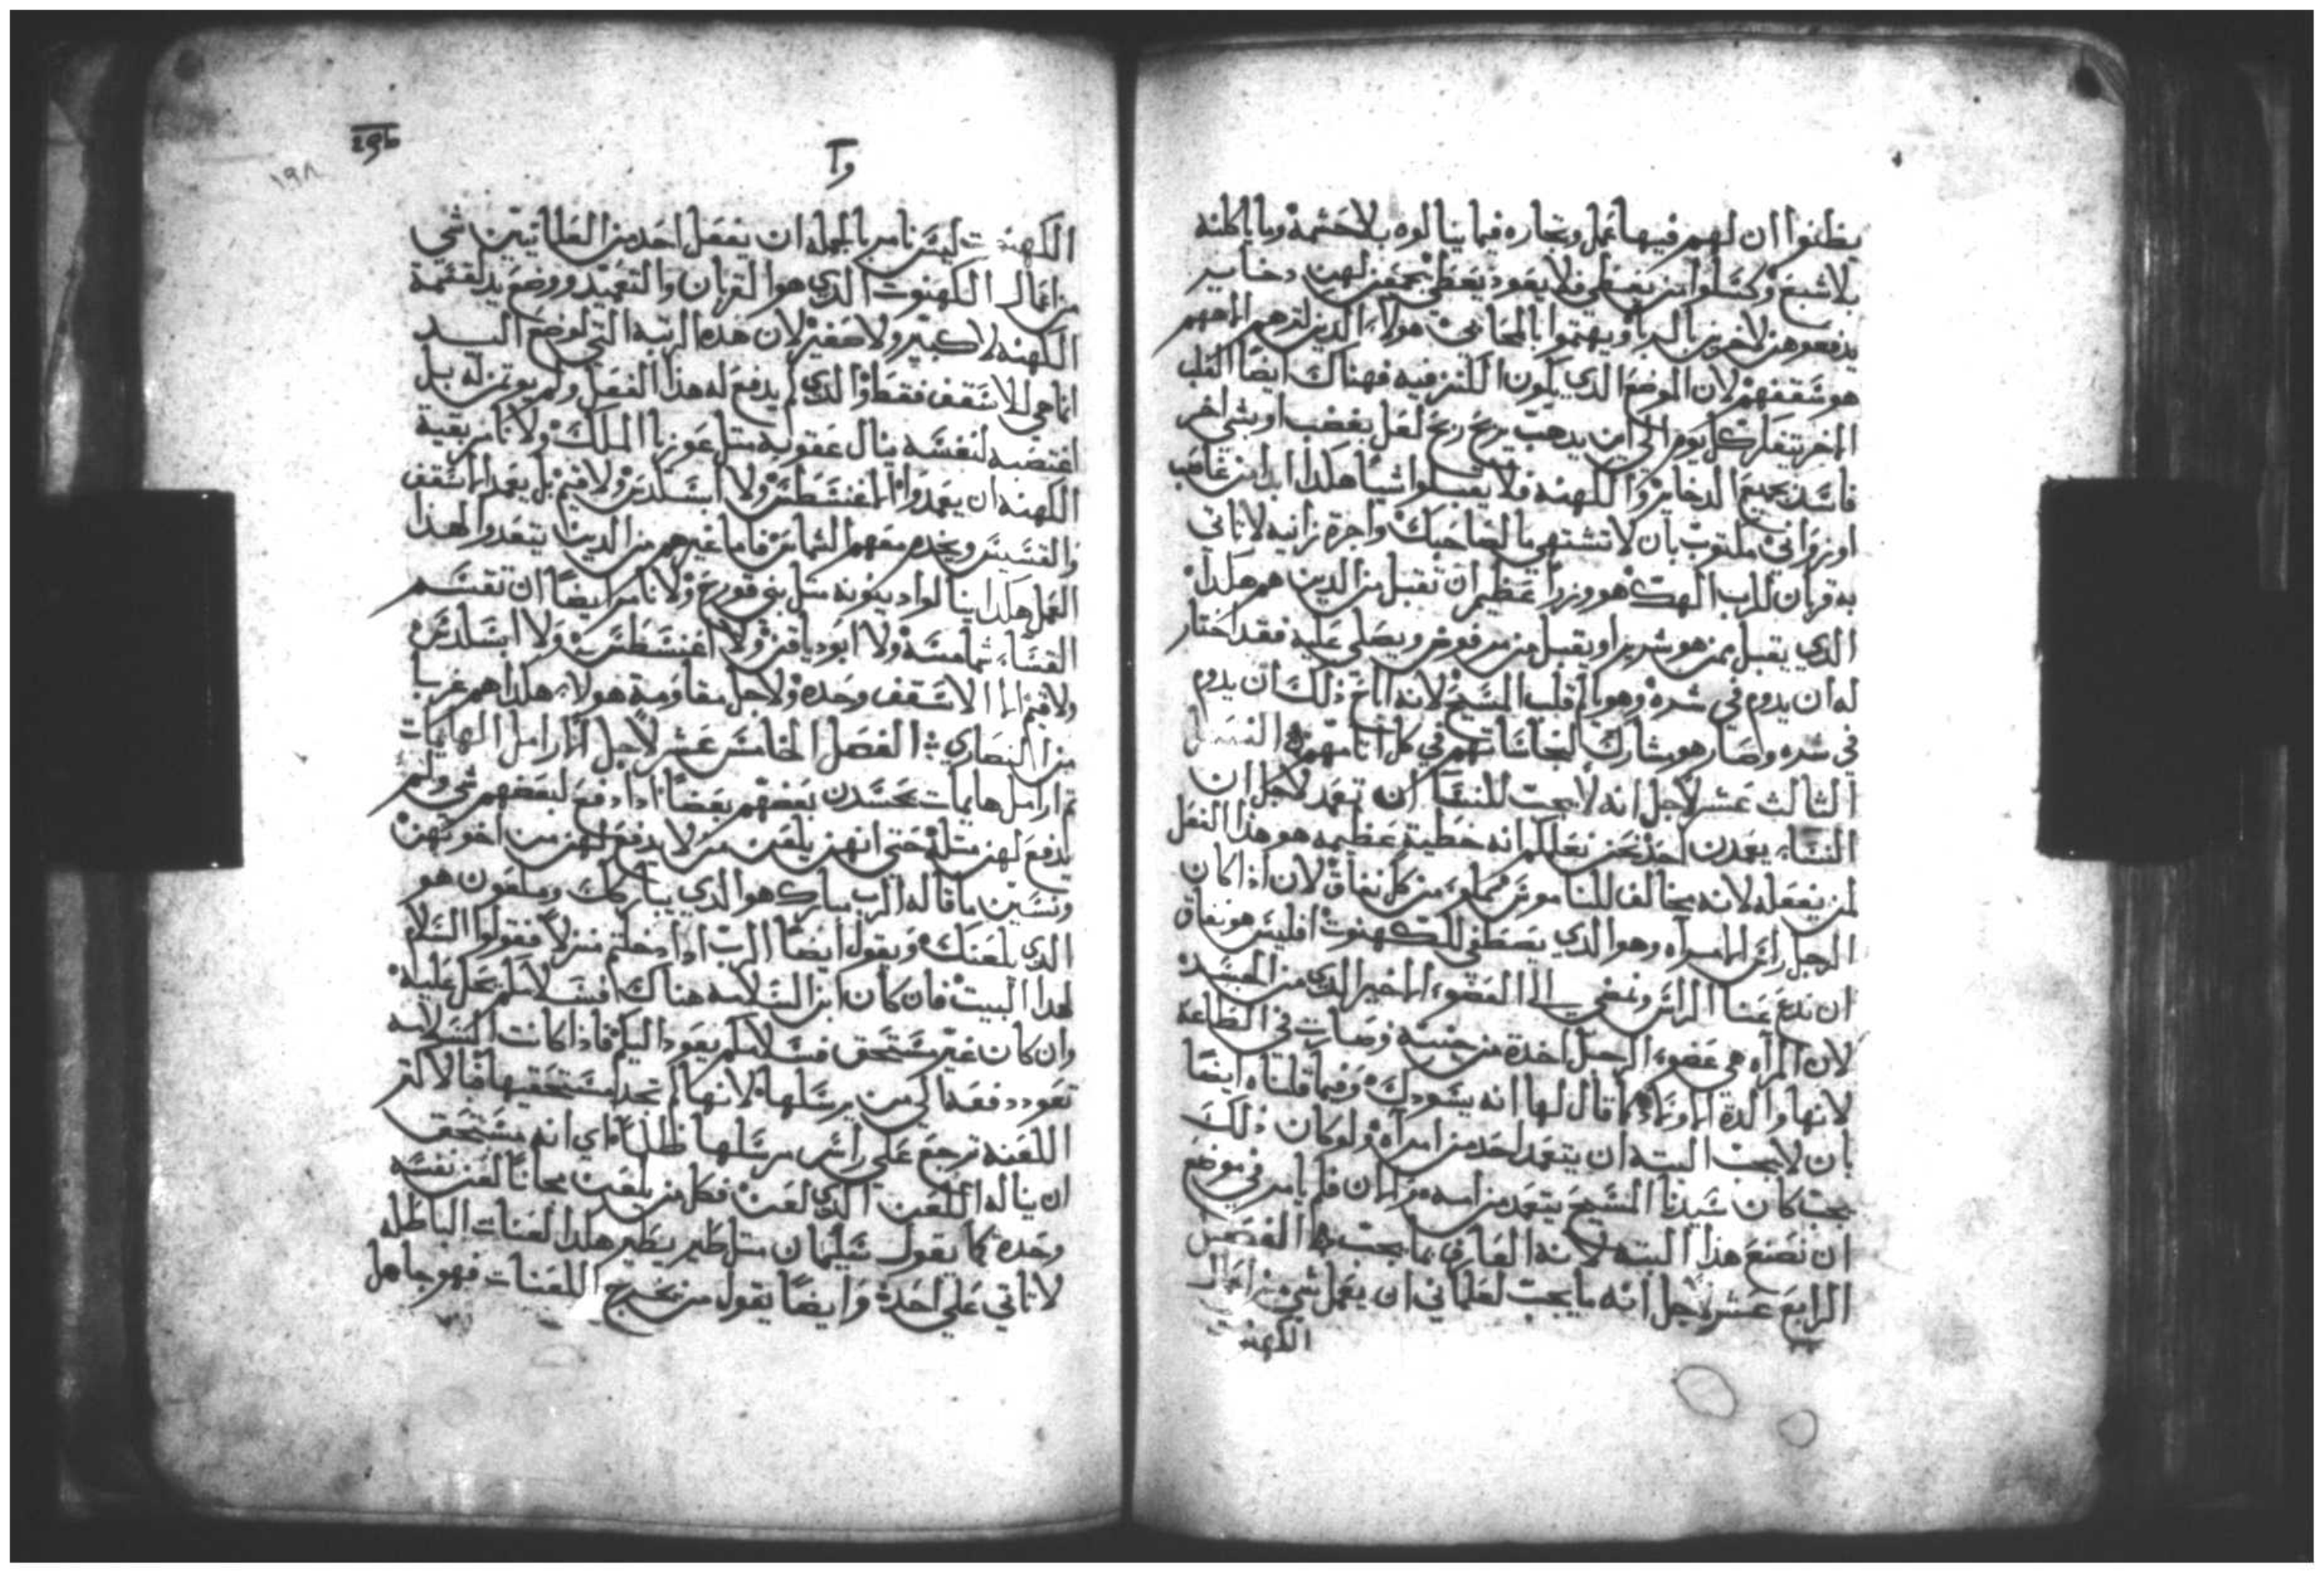 يظنوا ان لهم فيها عمل وتجاره فيما ينالوه بلا حشمة وما ياكلنه
بلا شبع وكسلوا من يعطي فلا يعود يعطي بجمعن لهن دخاير
يدفعوهن لاخرين بالربا ويهتموا بالمجان هولاء الذين لهم الاههم
هو شقفهم لان الموضع الذي يكون الكنز فيه فهناك ايضا القلب
الاخر تفكر كل يوم الى اين يدهب يربح ربح لعل بغضب او بشي اخر
فاسد بجميع الدخاير والكهنه فلا يقبلوا شيا هكدا ابدا من غاصب
او زواني مكتوب بان لا تشتهي ما لصاحبك واجرة زانيه لا تاتي
به قربان للرب الهك هو وزرا عظيم ان تقبل من الدين هم هكدا
الذي يقبل ممن هو شرير او يقبل من مرفوض ويصلي عليه فقد اختار
له ان يدوم في شره وهو يالم قلب المسيح لانه اباح ذلك ان يدوم
في شره وصار هو مشارك لنجاساتهم في كل اثامهم الفصل
الثالث عشر لاجل انه لا يجب للنسا ان تعمد لاجل ان
النساء يعمدن احد نحن نعلمكم انه خطية عظيمه هو هذا الفعل
لمن يفعله لانه مخالف للناموس مملوء من كل نفاق لان اذا كان
الرجل راس الامراه وهو الدي يصطفى للكهنوت افليس هو نفاق
ان ندع عنا الراس ونمضي الى العضو الاخير الدي من الجسد
لان المراه هي عضو الرجل اخذة من جنبه وصارت في الطاعة
لانها والدة الاولاد كما قال لها انه يسودك وفيما قلناه ايضا
بان لا يجب البته ان يتعمد احد من امراه ولو كان ذلك
يجب كان سيدنا المسيح يتعمد من امه فلم يامر في موضع
ان نصنع هذا البته لانه العارف بما يجب الفصل
الرابع عشر لاجل انه ما يجب لعلماني ان يعمل شي من اعمال
الكهنوت
الكهنوت ليس نامر بالجمله ان يفعل احد من العلمانيين شي
من اعمال الكهنوت الدي هو القربان والتعميد ووضع يد لقسمة
الكهنه لا كبير ولا صغير لان هده الرتبه التي لوضع اليد
انما هي للاسقف فقط والدي لم يدفع له هذا الفعل ولم يوتمن له بل
اغتصبه لنفسه ينال عقوبه مثل عوزيا الملك ولا نامر بقية
الكهنه ان يعمدوا لا اغنسطس ولا ابسلدس ولا قيم بل يعمد الاسقف
والقسيس ويخدم معهم الشماس فاما غيرهم من الدين يتعدوا لهذا
العمل هكدا ينالوا دينونه مثل بني قورح ولا نامر ايضا ان تقسم
القساء شمامسه ولا ابودياقن ولا اغنسطس ولا ابسلدس
ولا قيم الا الاسقف وحده ولاجل مقاومة هولاء هكدا هم غربا
من النصاري الفصل الخامس عشر لاجل الارامل الهايمات
ثم ارامل هايمات يحسدن بعضهم بعضا ادا دفع لبعضهم شي ولم
يدفع لهن مثله حتى انهن يلعن من لا يدفع لهن من اخوتهن
ونسين ما قاله الرب مبارك هو الدي يباركك وملعون هو
الذي يلعنك ويقول ايضا الرب ادا دخلتم منزلا فقولوا السلام
لهدا البيت فان كان ابن السلامه هناك فسلامكم يحل عليه
وان كان غير مستحق فسلامكم يعود اليكم فاذا كانت السلامه
تعود دفعه الى من يرسلها لانها لم تجد مستحقيها فبالاكتر
اللعنه ترجع على راس مرسلها ظلما اي انه مستحق
ان يناله اللعن الدي لعن فكل من يلعن مجانا لعن نفسه
وحده كما يقول سليمان مثل طير يطير هكدا لعنات الباطله
لا تاتي على احدة وايضا يقول من يخرج اللعنات فهو جاهل